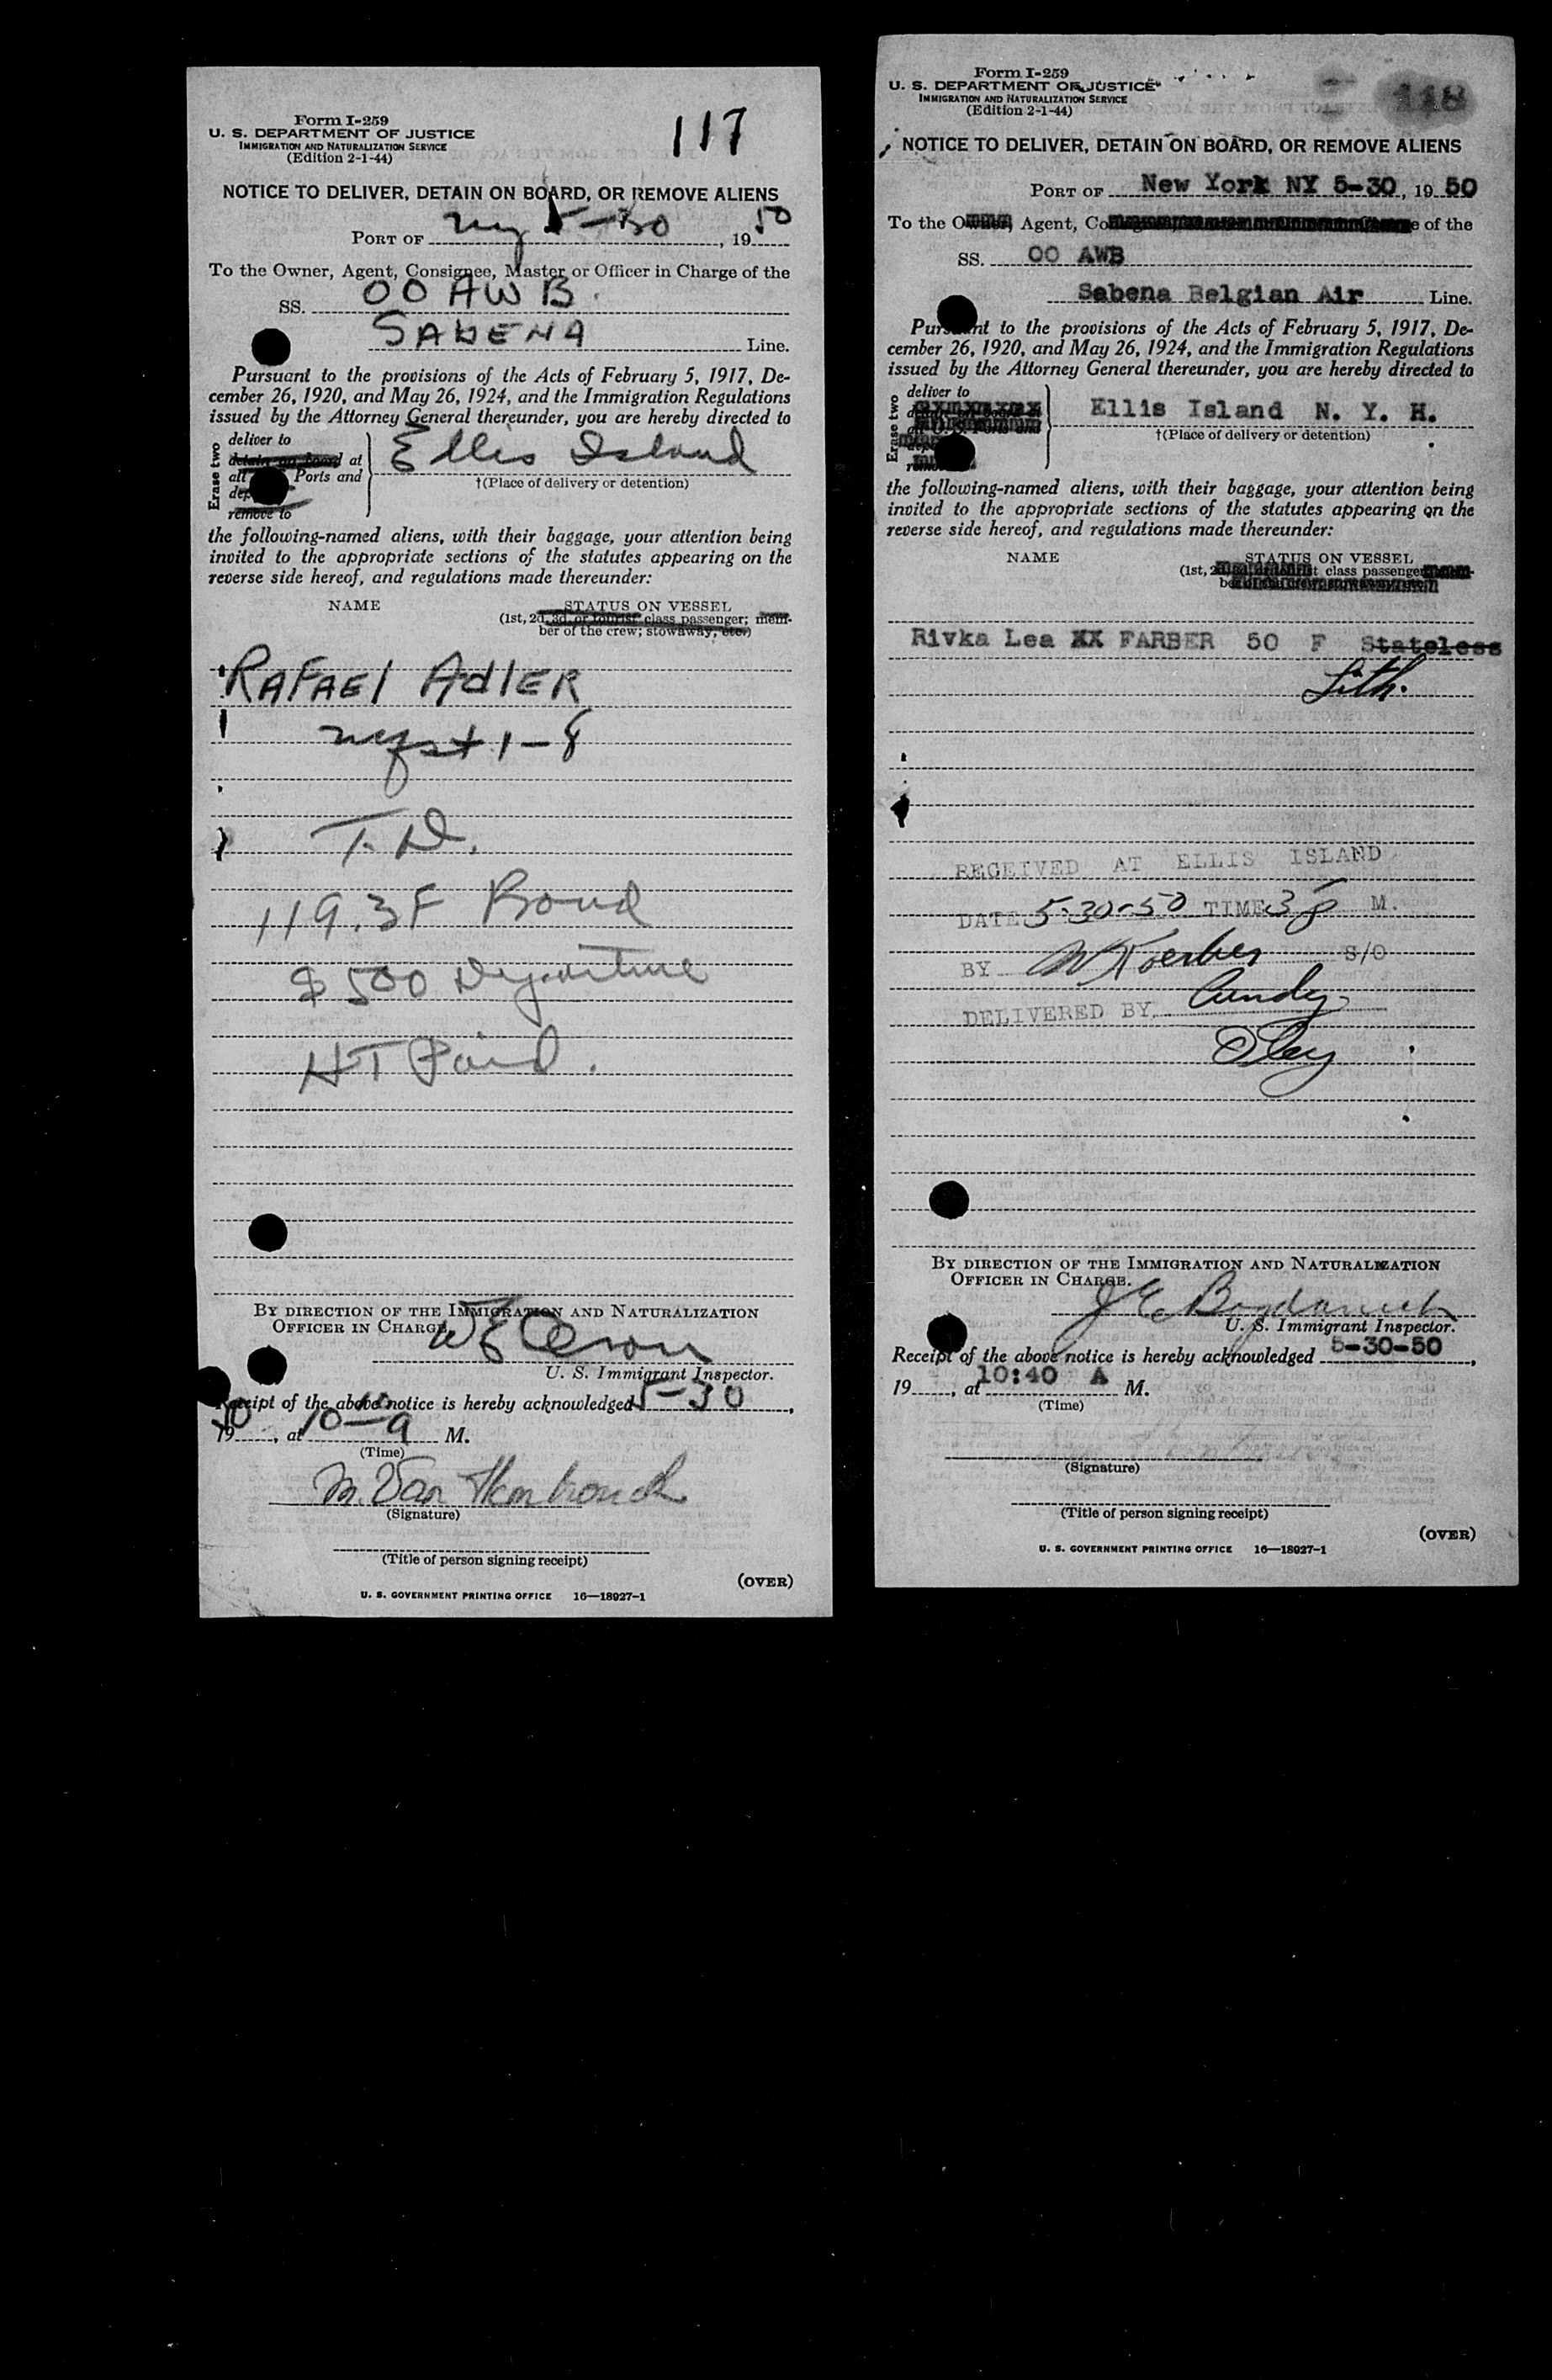 117
Form I-259
U. S. DEPARTMENT OF JUSTICE
IMMIGRATION AND NATURALIZATION SERVICE
(Edition 2-1-44)
NOTICE TO DELIVER, DETAIN ON BOARD, OR REMOVE ALIENS
PORT OF ny 5-30, 1950
To the Owner, Agent, Consignee, Master or Officer in Charge of the
SS. OO AWB.
SABENA Line.
Pursuant to the provisions of the Acts of February 5, 1917, De-
cember 26, 1920, and May 26, 1924, and the Immigration Regulations
issued by the Attorney General thereunder, you are hereby directed to
Erase two
deliver to
detain on board at
all Ports and
remove to
Ellis Island
†(Place of delivery or detention)
the following-named aliens, with their baggage, your attention being
invited to the appropriate sections of the statutes appearing on the
reverse side hereof, and regulations made thereunder:
NAME STATUS ON VESSEL
(1st, 2d, 3d, or tourist class passenger; mem-
ber of the crew; stowaway, etc.)
RAFAEl AdlER
T. D.
119.3F Bond
$500 Departure
HT Paid.
BY DIRECTION OF THE IMMIGRATION AND NATURALIZATION
OFFICER IN CHARGE
U. S. Immigrant Inspector.
Receipt of the above notice is hereby acknowledged 5-30,
1950, at 10-a M.
(Time)
M. Van
(Signature)
(Title of person signing receipt)
(OVER)
U. S. GOVERNMENT PRINTING OFFICE 16—18927-1
118
Form I-259
U. S. DEPARTMENT OF JUSTICE
IMMIGRATION AND NATURALIZATION SERVICE
(Edition 2-1-44)
NOTICE TO DELIVER, DETAIN ON BOARD, OR REMOVE ALIENS
PORT OF New York NY 5-30, 19 50
To the Owner, Agent, Co e of the
SS. OO AWB
Sabena Belgian Air Line.
Pursuant to the provisions of the Acts of February 5, 1917, De-
cember 26, 1920, and May 26, 1924, and the Immigration Regulations
issued by the Attorney General thereunder, you are hereby directed to
Erase two
deliver to
Ellis Island N. Y. H.
†(Place of delivery or detention)
the following-named aliens, with their baggage, your attention being
invited to the appropriate sections of the statutes appearing on the
reverse side hereof, and regulations made thereunder:
NAME STATUS ON VESSEL
(1st, 2 class passenger
Rivka Lea XX FARBER 50 F Stateless
Lith.
RECEIVED AT ELLIS ISLAND
DATE 5-30-50 TIME M.
BY S/O
DELIVERED BY
BY DIRECTION OF THE IMMIGRATION AND NATURALIZATION
OFFICER IN CHARGE.
U. S. Immigrant Inspector.
Receipt of the above notice is hereby acknowledged 5-30-50,
19, at 10:40 A M.
(Time)
(Signature)
(Title of person signing receipt)
(OVER)
U. S. GOVERNMENT PRINTING OFFICE 16—18927-1